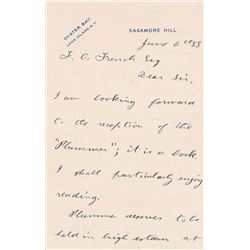 OYSTER BAY,
LONG ISLAND, N.Y.
SAGAMORE HILL
June 6th 88
T. O. French Esq
Dear Sir,
I am looking forward
to the reception of the
"Plummer"; it is a book
I shall particularly enjoy
reading.
Plummer deserves to be
held in high esteem at